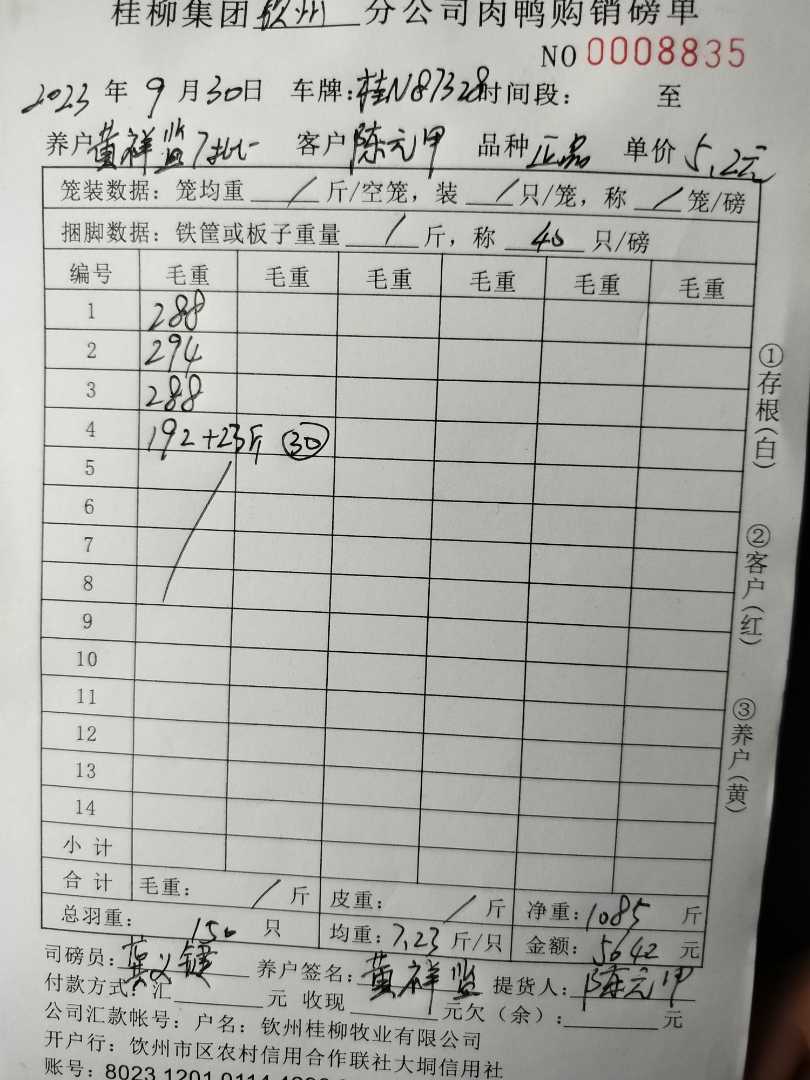 桂柳集团钦州分公司肉鸭购销磅单
NO 0008835
2023年9月30日 车牌:桂N87328时间段: 至
养户黄祥监7批 客户陈元甲 品种正品 单价5.2元
笼装数据: 笼均重/斤/空笼, 装/只/笼, 称/笼/磅
捆脚数据: 铁筐或板子重量/斤, 称40只/磅
编号 毛重 毛重 毛重 毛重 毛重 毛重
1 288
2 294
3 288
4 192+23斤 ㉚
5
6
7
8
9
10
11
12
13
14
小计
合计 毛重: / 斤 皮重: / 斤 净重:1085斤
总羽重: 150 只 均重:7.23斤/只 金额:5642元
①存根(白)
②客户(红)
③养户(黄)
司磅员: 养户签名:黄祥监 提货人:陈元甲
付款方式:汇 元 收现 元欠(余): 元
公司汇款帐号: 户名: 钦州桂柳牧业有限公司
开户行: 钦州市区农村信用合作联社大垌信用社
账号: 8023 1201 0114